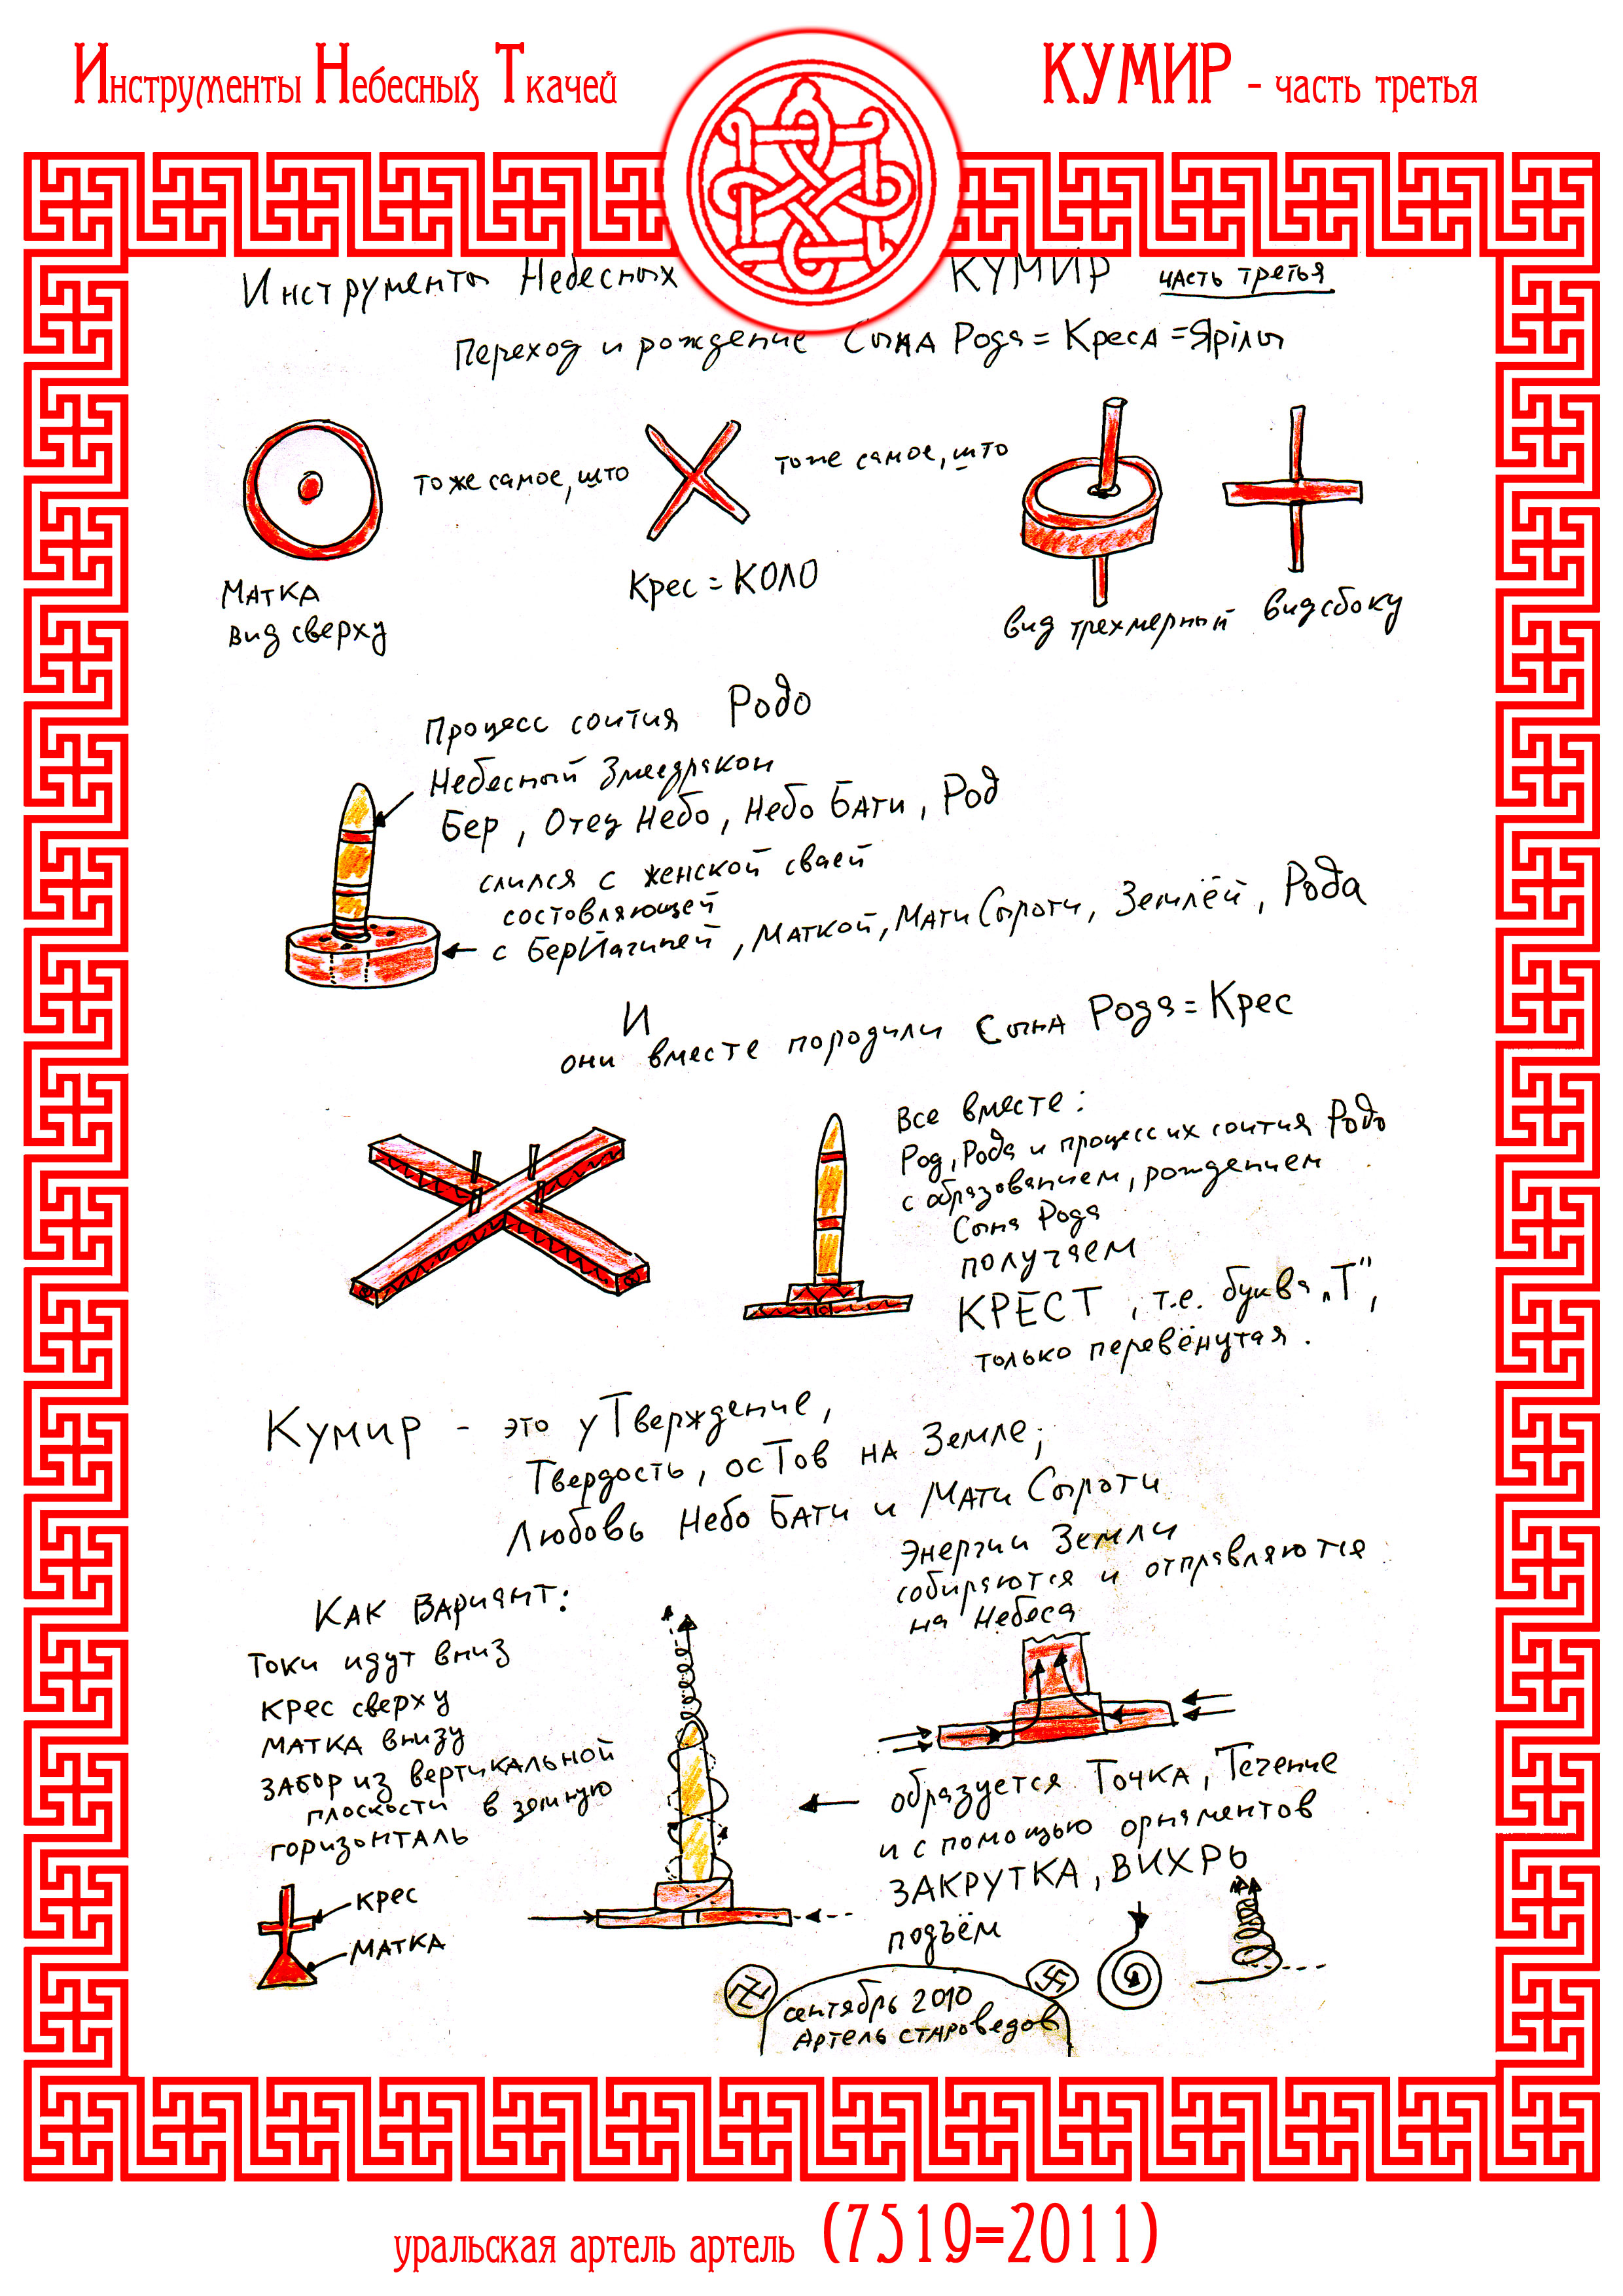 Инструменты Небесных Ткачей
КУМИР - часть третья
Инструменты Небесных
КУМИР часть третья
Переход и рождение Сына Рода = Креса = Ярiлы
тоже самое, што
тоже самое, што
Матка
вид сверху
Крес = КОЛО
вид трехмерный
вид сбоку
Процесс соития Родо
Небесный Змеедракон
Бер, Отец Небо, Небо Бати, Род
слился с женской сваей
состовляющей
с БерЙагиней, Маткой, Мати Сырати, Землёй, Рода
И
они вместе породили Сына Рода = Крес
Все вместе:
Род, Рода и процесс их соития Родо
с образованием, рождением
Сына Рода
получаем
КРЕСТ, т.е. буква „Т",
только перевёнутая.
Кумир - это уТверждение,
Твердость, осТов на Земле;
Любовь Небо Бати и Мати Сырати
Энергии Земли
собираются и отправляются
на Небеса
Как Вариант:
Токи идут вниз
Крес сверху
Матка внизу
забор из вертикальной
плоскости в земную
горизонталь
Крес
Матка
образуется Точка, Течение
и с помощью орнаментов
ЗАКРУТКА, ВИХРЬ
подъём
сентябрь 2010
Артель староведов
уральская артель артель (7519=2011)